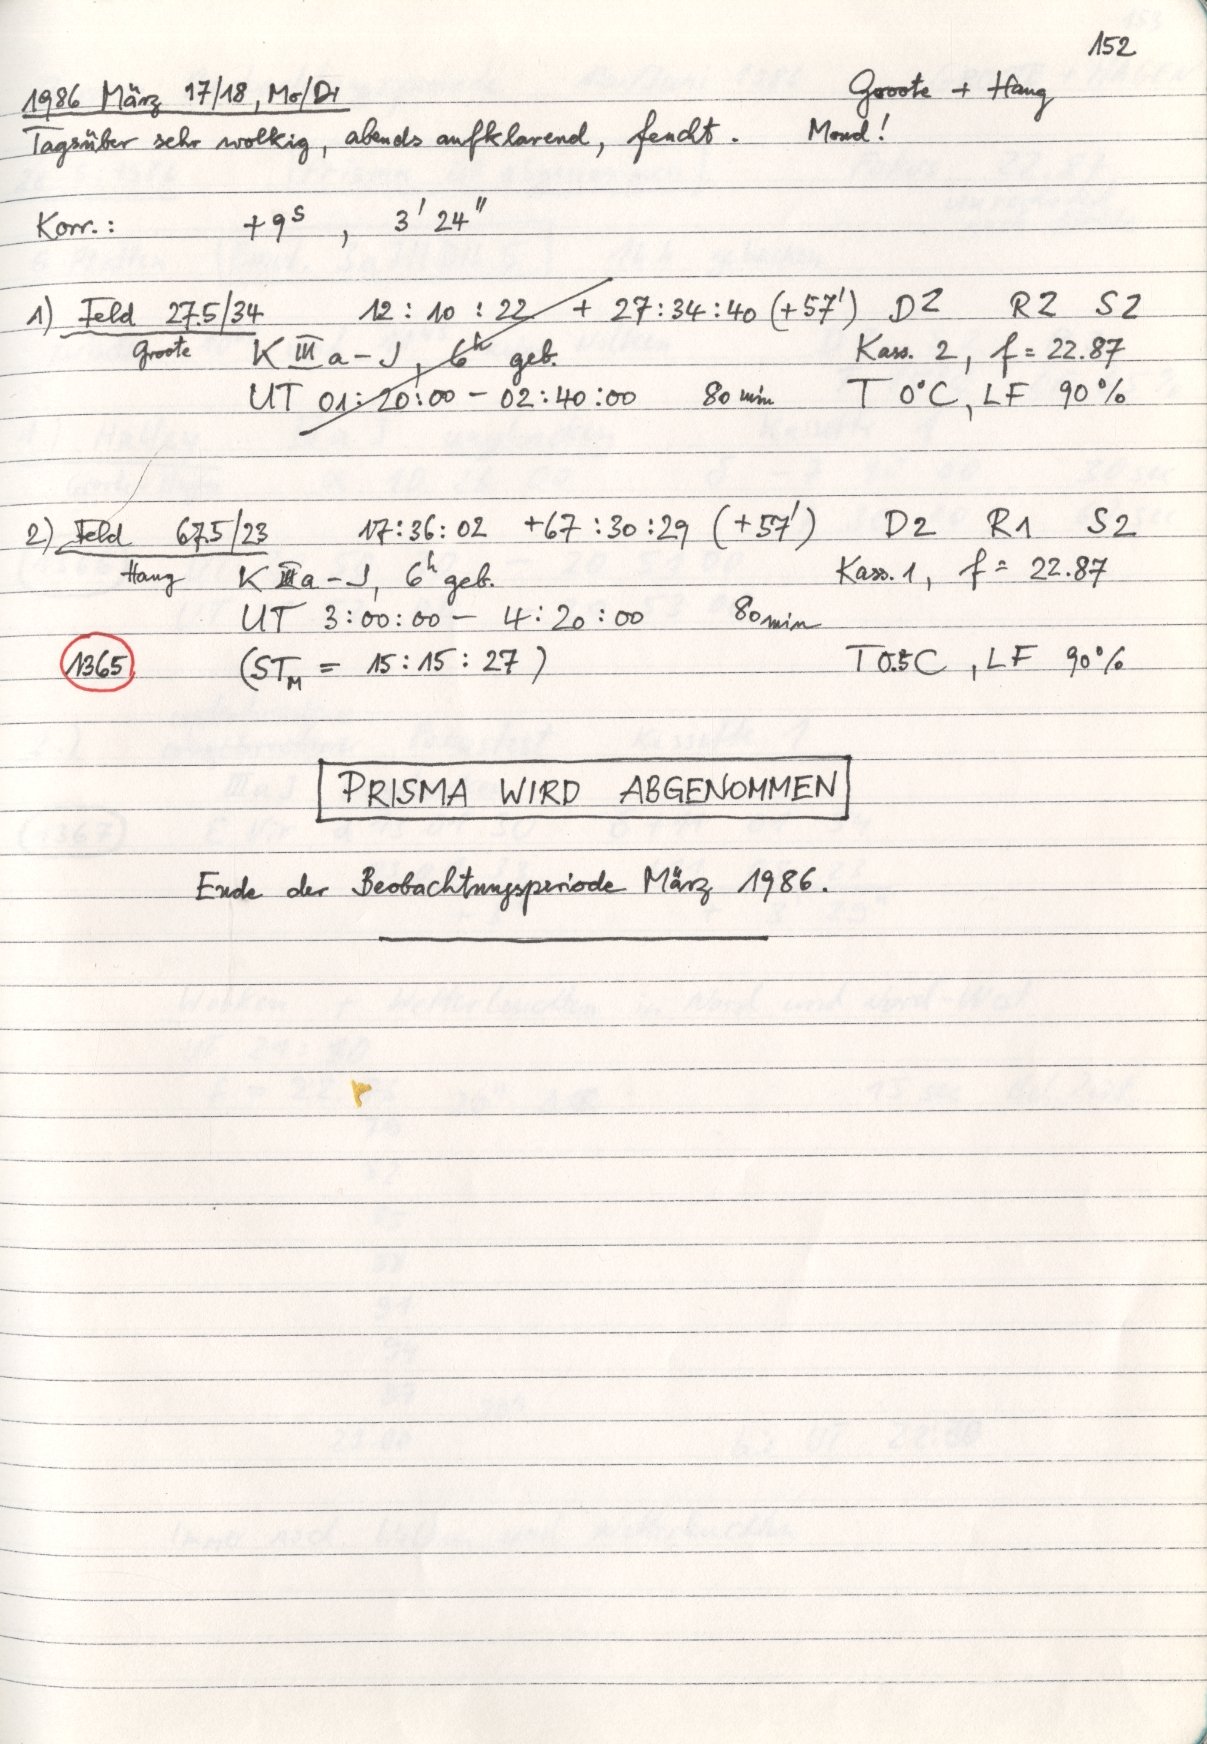 152
1986 März 17/18, Mo/Di Groote + Hang
Tagsüber sehr wolkig, abends aufklarend, feucht. Mond!
Korr.: +9ˢ, 3' 24"
1) Feld 27.5/34 12:10:22 + 27:34:40 (+57') D2 R2 S2
Groote K III a-J, 6ʰ geb. Kass. 2, f = 22.87
UT 01:20:00 - 02:40:00 80 min T 0°C, LF 90%
2) Feld 67.5/23 17:36:02 +67:30:29 (+57') D2 R1 S2
Hang K III a-J, 6ʰ geb. Kass. 1, f = 22.87
UT 3:00:00 - 4:20:00 80 min
1365 (STM = 15:15:27) T 0.5°C, LF 90%
PRISMA WIRD ABGENOMMEN
Ende der Beobachtungsperiode März 1986.